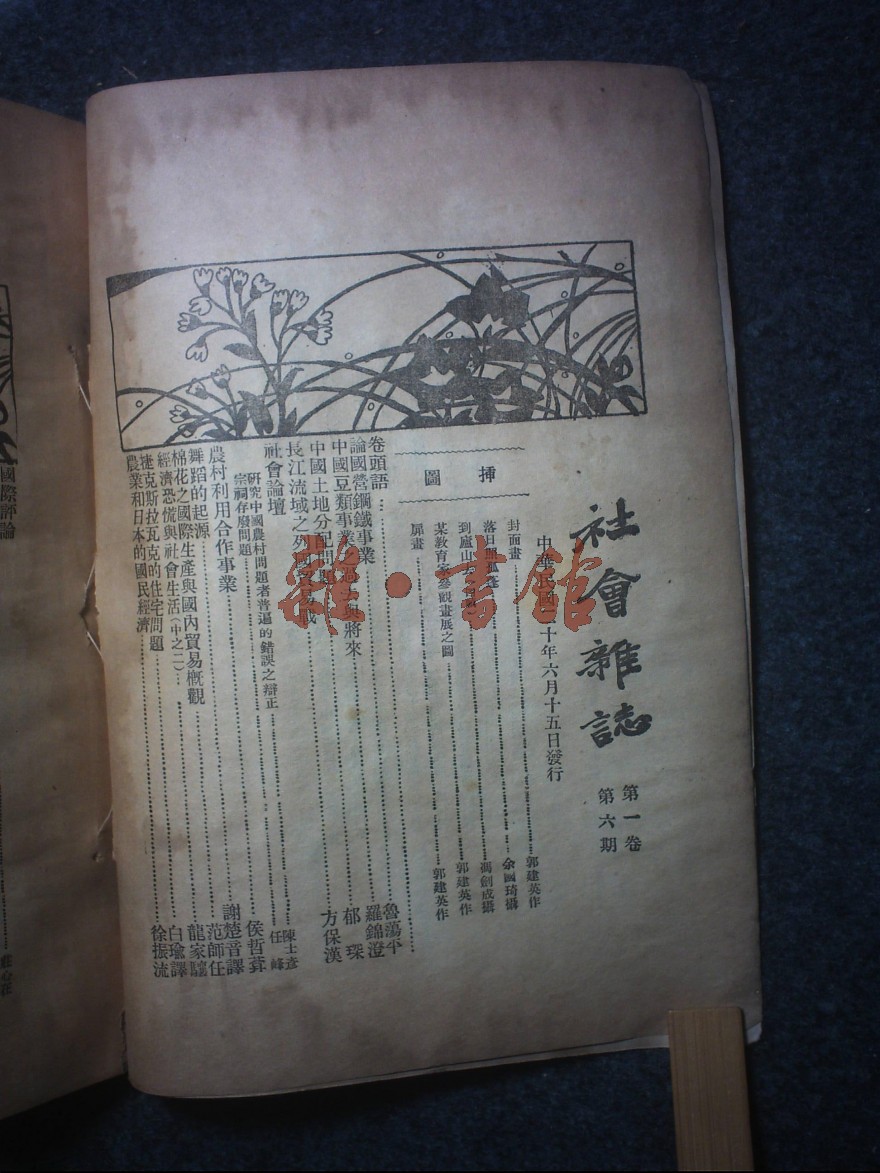 社會雜誌
第一卷
第六期
中華民國二十年六月十五日發行
插圖
封面畫 郭建英作
落日 余國琦攝
到廬山去 馮劍成攝
某教育家參觀畫展之圖 郭建英作
扉畫 郭建英作
卷頭語
論國營鋼鐵事業 魯蕩平
中國豆類事業之過去與將來 羅錦澄
中國土地分配問題 郁琛
長江流域之列國 戰 方保漢
社會論壇
研究中國農村問題者普遍的錯誤之辯正 陳士彥
宗祠存廢問題 任峰
農村利用合作事業 侯哲葊
舞蹈的起源 謝楚音譯
棉花之國際生產與國內貿易概觀 范師任
經濟恐慌與社會生活(中之二) 龍家驤
捷克斯拉瓦克的住宅問題 白瑜譯
農業和日本的國民經濟 徐振流
國際評論
雜·書館